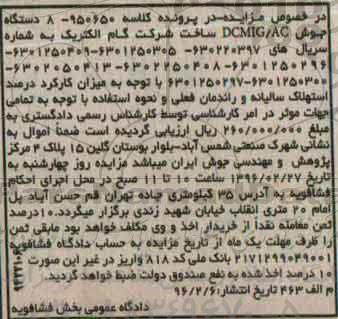 در خصوص مزایده-در پرونده کلاسه ۹۵۰۶۵۰- ۸ دستگاه
جوش DCMIG/AC ساخت شرکت گام الکتریک به شماره
سریال های ۶۳۰۲۲۰۳۹۷-۶۳۰۱۲۵۰۳۰۵-۶۳۰۱۲۵۰۳۰۹-
۶۳۰۱۲۵۰۲۹۶-۶۳۰۲۲۵۰۴۰۸-۶۳۰۲۰۵۰۴۱۳-
۶۳۰۱۲۵۰۳۰۰-۶۳۰۱۲۵۰۲۹۷ با توجه به میزان کارکرد درصد
استهلاک سالیانه و راندمان فعلی و نحوه استفاده با توجه به تمامی
جهات موثر در امر کارشناسی توسط کارشناس رسمی دادگستری به
مبلغ ۲۶۰/۰۰۰/۰۰۰ ریال ارزیابی گردیده است ضمناً اموال به
نشانی شهرک صنعتی شمس آباد-بلوار بوستان گلبن ۱۵ پلاک ۴ مرکز
پژوهش و مهندسی جوش ایران میباشد مزایده روز چهارشنبه به
تاریخ ۱۳۹۶/۰۲/۲۷ ساعت ۱۰ تا ۱۱ صبح در محل اجرای احکام
فشافویه به آدرس ۳۵ کیلومتری جاده تهران قم حسن آباد پل
امام ۲۰ متری انقلاب خیابان شهید زندی برگزار میگردد.۱۰درصد
ثمن معامله نقداً از خریدار اخذ و وی مکلف خواهد بود مابقی ثمن
را ظرف مهلت یک ماه از تاریخ مزایده به حساب دادگاه فشافویه
۲۱۷۱۲۹۹۰۴۹۰۰۱ بانک ملی کد ۸۱۸ واریز در غیر این صورت
۱۰ درصد اخذ شده به نفع صندوق دولت ضبط خواهد گردید.
م الف ۴۶۳ تاریخ انتشار:۹۶/۲/۶
دادگاه عمومی بخش فشافویه